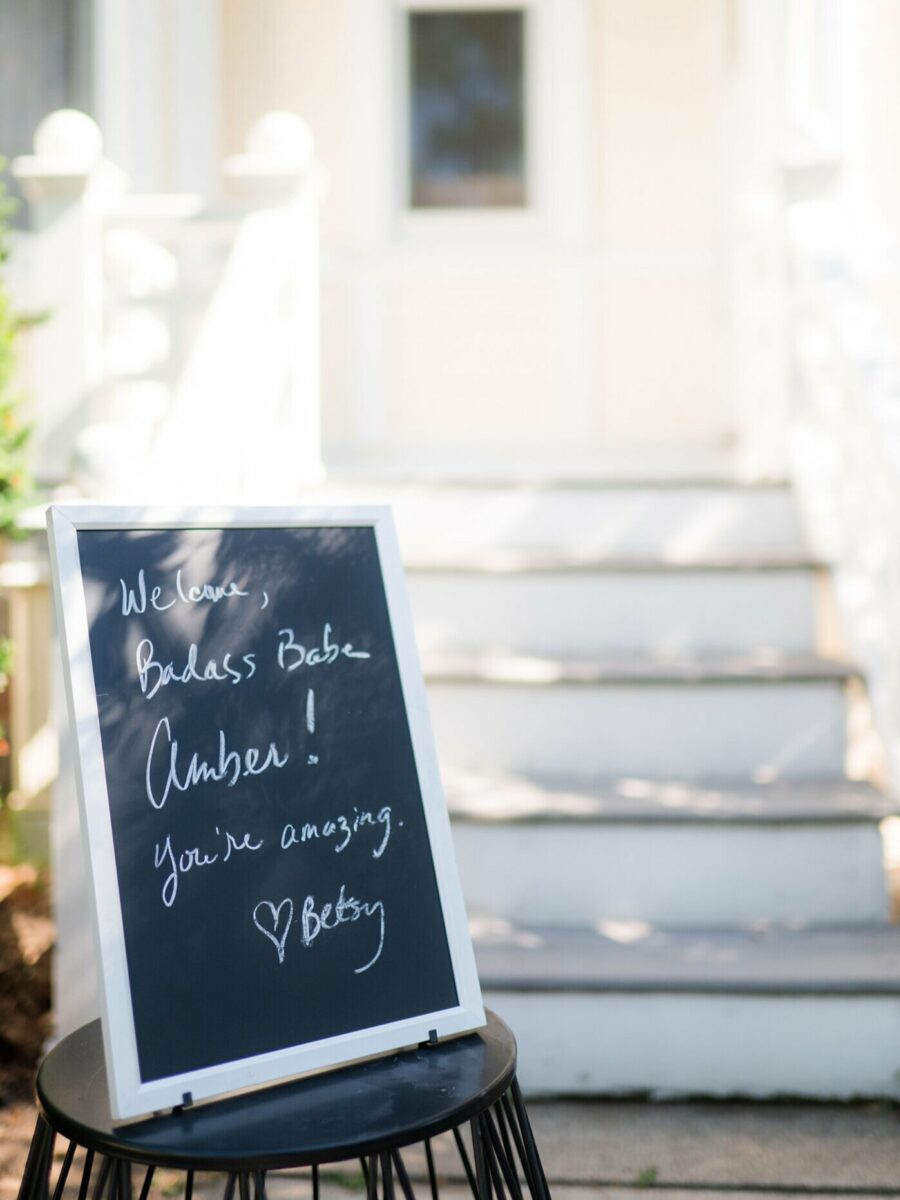 Welcome,
Badass Babe
Amber!
You're amazing.
♡Betsy